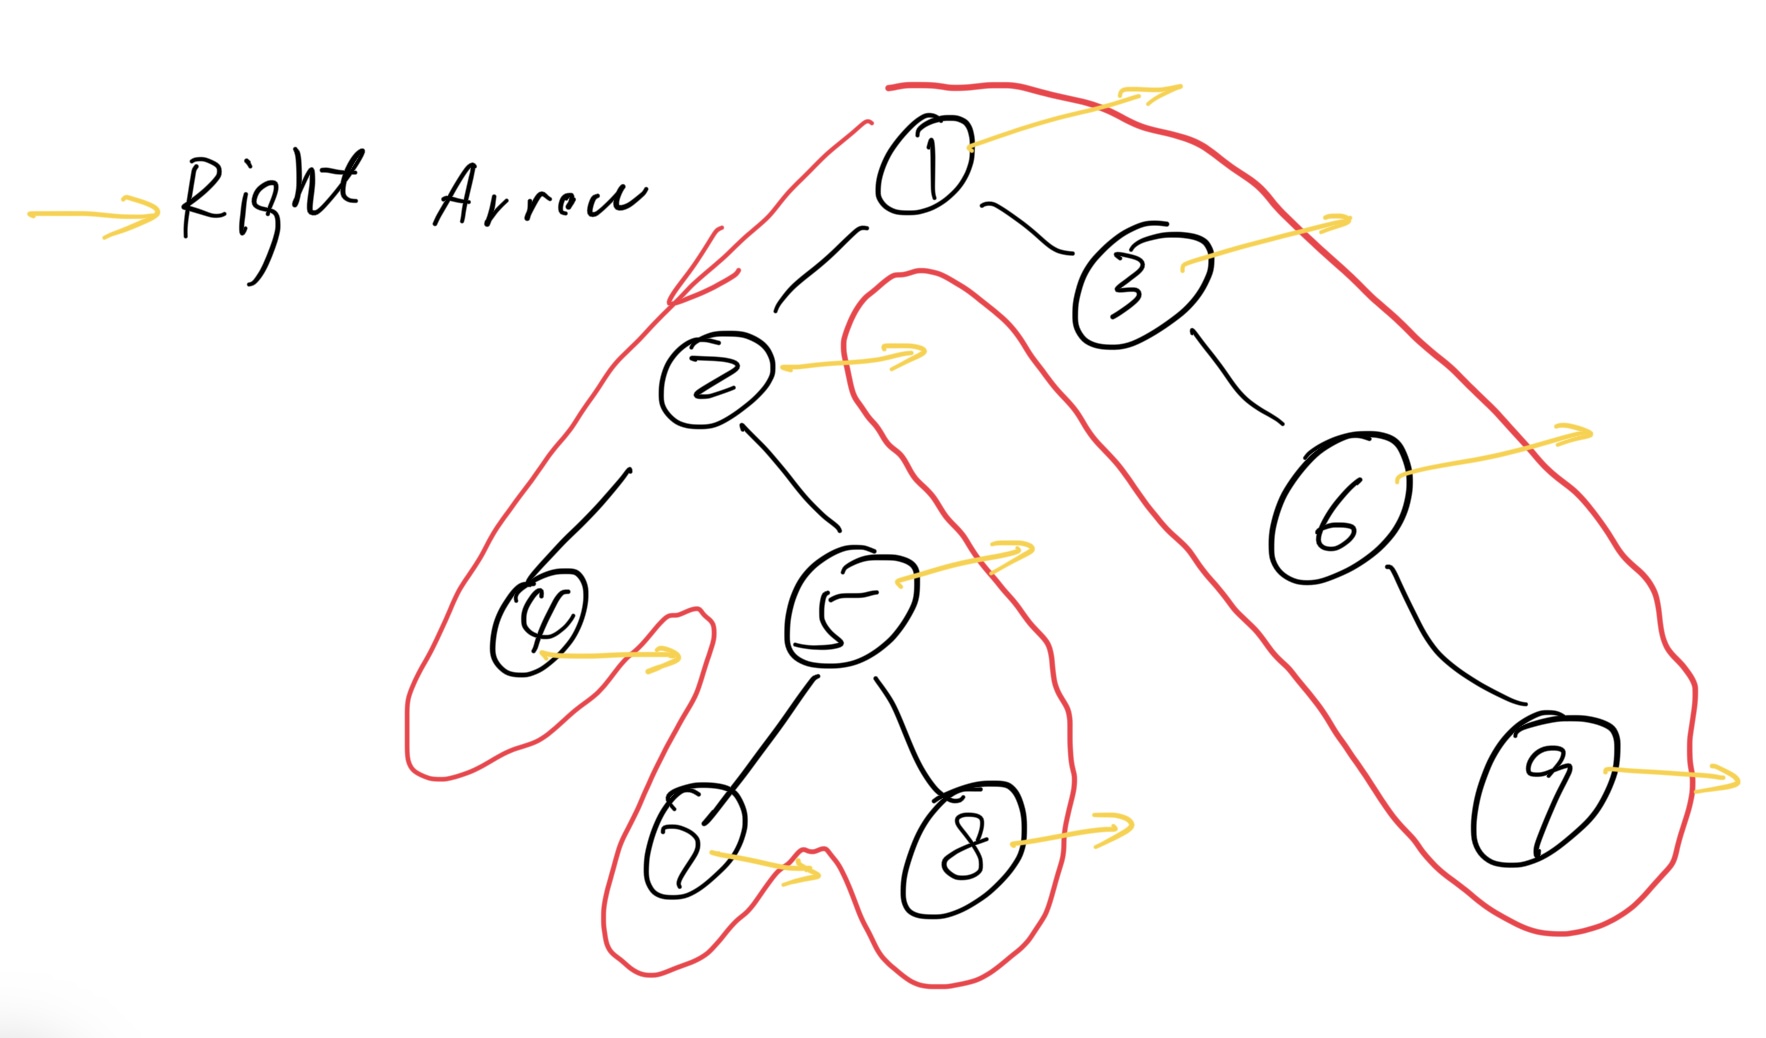 Right Arrow
1
3
2
6
4
5
7
8
9